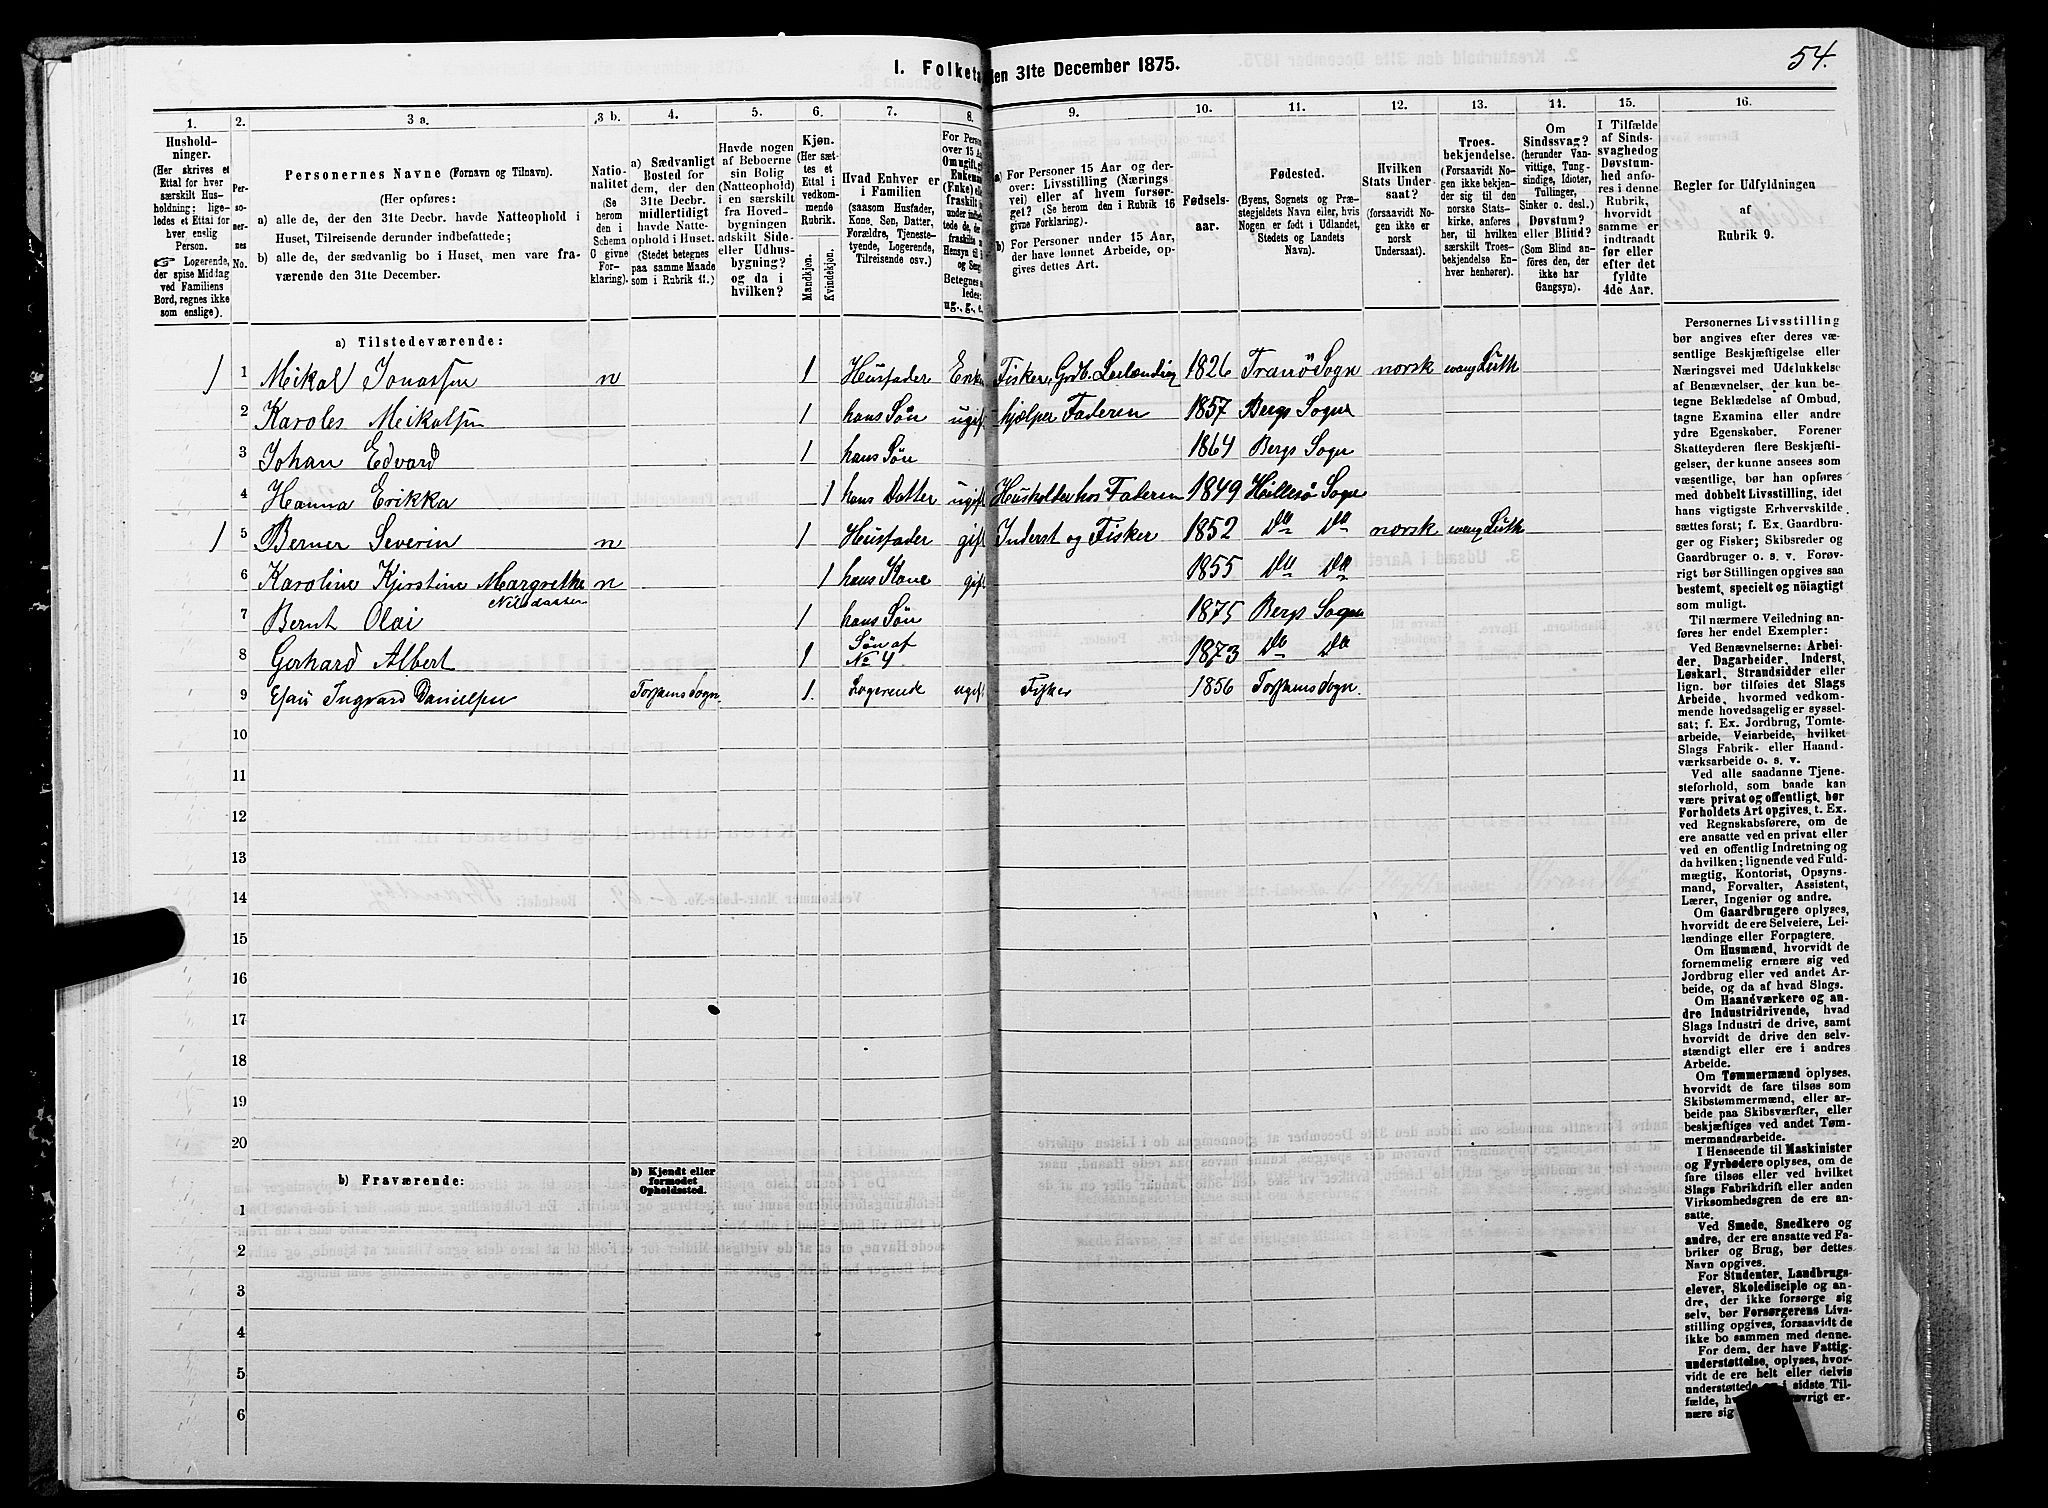 54.
1. Folketæ
den 31te December 1875.
1.
2.
3 a.
3 b.
4.
5.
6.
7.
8.
9.
10.
11.
12.
13.
14.
15.
16.
Hushold-
ninger.
(Her skrives et
Ettal for hver
særskilt Hus-
holdning; lige-
ledes et Ettal for
hver enslig
Person.
☞ Logerende,
der spise Middag
ved Familiens
Bord, regnes ikke
som enslige).
Per-
so-
ner-
nes
No.
Personernes Navne (Fornavn og Tilnavn).
(Her opføres:
a) alle de, der den 31te Decbr. havde Natteophold i
Huset, Tilreisende derunder indbefattede;
b) alle de, der sædvanlig bo i Huset, men vare fra-
værende den 31te December.
Natio-
nalitet
(Se
herom
den i
Schema
G givne
For-
klaring).
a) Sædvanligt
Bosted for
dem, der den
31te Decbr.
midlertidigt
havde Natte-
ophold i Huset.
(Stedet betegnes
paa samme Maade
som i Rubrik 11.)
Havde nogen
af Beboerne
sin Bolig
(Natteophold)
i en særskilt
fra Hoved-
bygningen
adskilt Side-
eller Udhus-
bygning?
og da i
hvilken?
Kjøn.
(Her sæt-
tes et
Ettal i
vedkom-
mende
Rubrik.
Mandkjøn.
Kvindekjøn.
Hvad Enhver er
i Familien
(saasom Husfader,
Kone, Søn, Datter,
Forældre, Tjeneste-
tyende, Logerende,
Tilreisende osv.)
For Person
over 15 Aa
Om ugift,
Enkem
(Enke) elle
fraskilt
under indbe
tede de, de
fraskilte
Hensyn til
og Seng
Betegnes
ledes:
ug., g., e.
a) For Personer 15 Aar og der-
over: Livsstilling (Nærings-
vei) eller af hvem forsør-
get? (Se herom den i Rubrik 16
givne Forklaring).
b) For Personer under 15 Aar,
der have lønnet Arbeide, op-
gives dettes Art.
Fødsels-
aar.
Fødested.
(Byens, Sognets og Præ-
stegjeldets Navn eller, hvis
Nogen er født i Udlandet,
Stedets og Landets
Navn).
Hvilken
Stats Under-
saat?
(forsaavidt No-
gen ikke er
norsk
Undersaat).
Troes-
bekjendelse.
(Forsaavidt No-
gen ikke bekjen-
der sig til den
norske Stats-
kirke, anføres
her, til hvilken
særskilt Troes-
bekjendelse En-
hver henhører).
Om
Sindssvag?
(herunder Van-
vittige, Tung-
sindige, Idioter,
Tullinger,
Sinker o. desl.)
Døvstum?
eller Blind?
(Som Blind an-
føres den, der
ikke har
Gangsyn).
I Tilfælde
af Sinds-
svaghed og
Døvstum-
hed anfø-
res i denne
Rubrik,
hvorvidt
samme er
indtraadt
før eller
efter det
fyldte
4de Aar.
Regler for Udfyldningen
af
Rubrik 9.
a) Tilstedeværende:
1 1 Mikal Jonassen n 1 Husfader Enke Fisker, Grdb. Leilænding 1826 Tranö Sogn norsk evang Luth
2 Karoles Meikalsen 1 hans Søn ugift hjælper Faderen 1857 Bergs Sogn
3 Johan Edvard 1 hans Søn 1864 Bergs Sogn
4 Hanna Erikka 1 hans Datter ugift Husholder hos Faderen 1849 Hillesö Sogn
1 5 Berner Severin n 1 Husfader gift Inderst og Fisker 1852 Do Do norsk evang Luth
6 Karoline Kjerstine Margrethe n 1 hans Kone gift 1855 Do Do
Nilsdatter
7 Bernt Olai 1 hans Søn 1875 Bergs Sogn
8 Gerhard Albert 1 Søn af No 4 1873 Do Do
9 Esau Ingvard Danielsen Torskens Sogn. 1. Logerende ugift Fisker 1856 Torskens Sogn.
10
11
12
13
14
15
16
17
18
19
20
b) Fraværende:
b) Kjendt eller
formodet
Opholdssted.
1
2
3
4
5
6
Personernes Livsstilling
bør angives efter deres væ-
sentlige Beskjæftigelse eller
Næringsvei med Udelukkelse
af Benævnelser, der kun be-
tegne Beklædelse af Ombud,
tagne Examina eller andre
ydre Egenskaber. Forener
Skatteyderen flere Beskjæfti-
gelser, der kunne ansees som
væsentlige, bør han opføres
med dobbelt Livsstilling, idet
hans vigtigste Erhvervskilde
sættes først; f. Ex. Gaardbru-
ger og Fisker; Skibsreder og
Gaardbruger o. s. v. Forøv-
rigt bør Stillingen opgives saa
bestemt, specielt og nöiagtigt
som muligt.
Til nærmere Veiledning an-
føres her endel Exempler:
Ved Benævnelserne: Arbei-
der, Dagarbeider, Inderst,
Løskarl, Strandsidder eller
lign. bør tilføies det Slags
Arbeide, hvormed vedkom-
mende hovedsagelig er syssel-
sat; f. Ex. Jordbrug, Tomte-
arbeide, Veiarbeide, hvilket
Slags Fabrik- eller Haand-
værksarbeide o. s. v.
Ved alle saadanne Tjene-
steforhold, som baade kan
være privat og offentligt, bør
Forholdets Art opgives, t. Ex.
ved Regnskabsførere, om de
ere ansatte ved en privat eller
ved en offentlig Indretning og
da hvilken; lignende ved Fuld-
mægtig, Kontorist, Opsyns-
mand, Forvalter, Assistent,
Lærer, Ingeniør og andre.
Om Gaardbrugere oplyses,
hvorvidt de ere Selveiere, Lei-
lændinge eller Forpagtere.
Om Husmænd, hvorvidt de
fornemmelig ernære sig ved
Jordbrug eller ved andet Ar-
beide, og da af hvad Slags.
Om Haandværkere og an-
dre Industridrivende, hvad
Slags Industri de drive, samt
hvorvidt de drive den selv-
stændigt eller ere i andres
Arbeide.
Om Tømmermænd oplyses,
hvorvidt de fare tilsøs som
Skibstømmermænd, eller ar-
beide paa Skibsværfter, eller
beskjæftiges ved andet Tøm-
mermandsarbeide.
I Henseende til Maskinister
og Fyrbødere oplyses, om de
fare tilsøs eller ved hvilket
Slags Fabrikdrift eller anden
Virksombedsgren de ere an-
satte.
Ved Smede, Snedkere og
andre, der ere ansatte ved Fa-
briker og Brug, bør dettes
Navn opgives.
For Studenter, Landbrugs-
elever, Skoledisciple og an-
dre, der ikke forsørge sig
selv, bør Forsørgerens Livs-
stilling opgives, forsaavidt de
ikke bo sammen med denne.
For dem, der have Fattig-
understøttelse, oplyses, hvor-
vidt de ere helt eller delvis
understøttede og i sidste Til-
fælde, øvrigt er-
nære sig